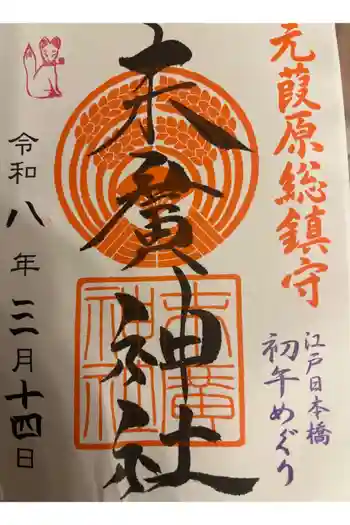 元葭原総鎮守
江戸日本橋
初午めぐり
末廣神社
末廣
神社
令和八年三月十四日